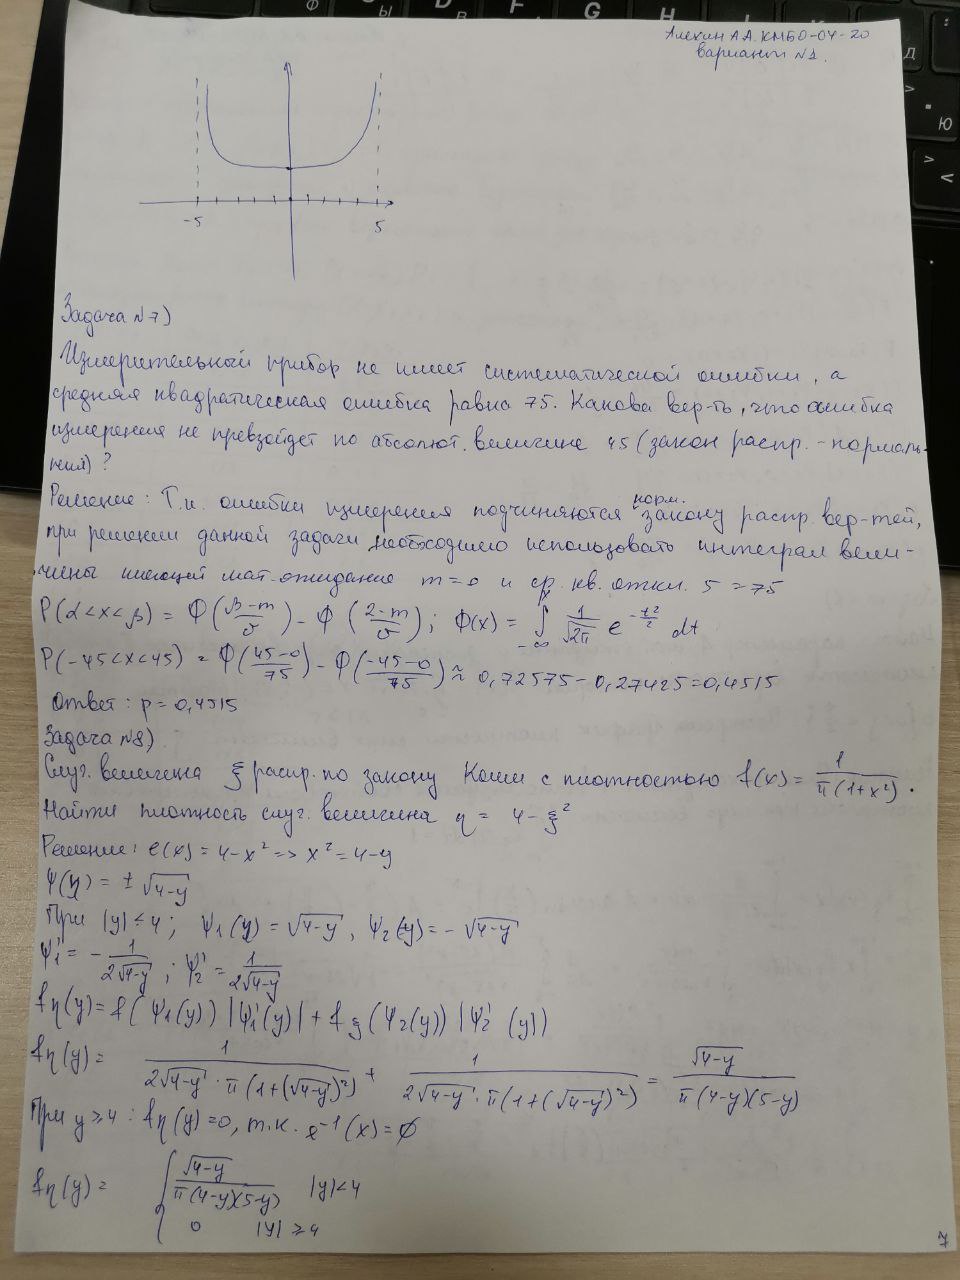 Алехин А.А. КМБО-04-20
вариант №1.
-5
5
Задача №7)
Измерительный прибор не имеет систематической ошибки, а
средняя квадратическая ошибка равна 75. Какова вер-ть, что ошибка
измерения не превзойдет по абсолют. величине 45 (закон распр. - нормаль-
ный) ?
Решение: Т.к. ошибки измерения подчиняются норм. закону распр. вер-тей,
при решении данной задачи необходимо использовать интеграл вели-
чины имеющей мат. ожидание m=0 и ср. кв. откл. σ = 75
P(α<x<β) = Φ(β-m/σ) - Φ(2-m/σ); Φ(x) = ∫_{-∞}^{x} 1/√2π e^{-t²/2} dt
P(-45<x<45) = Φ(45-0/75) - Φ(-45-0/75) ≈ 0,72575 - 0,27425 = 0,4515
Ответ: p = 0,4515
Задача №8)
Случ. величина ξ распр. по закону Коши с плотностью f(x) = 1/π(1+x²).
Найти плотность случ. величина η = 4-ξ²
Решение: e(x) = 4-x² => x² = 4-y
Ψ(y) = ± √4-y
При |y|<4; Ψ₁(y) = √4-y, Ψ₂(y) = - √4-y
Ψ₁' = - 1/2√4-y; Ψ₂' = 1/2√4-y
fη(y) = f(Ψ₁(y)) |Ψ₁'(y)| + fξ(Ψ₂(y)) |Ψ₂'(y)|
fη(y) = 1/2√4-y · π(1+(√4-y)²) + 1/2√4-y · π(1+(√4-y)²) = √4-y/π(4-y)(5-y)
При y ≥ 4 : fη(y) = 0, т.к. e⁻¹(x) = ∅
fη(y) = { √4-y/π(4-y)(5-y) |y|<4
0 |y| ≥ 4
7